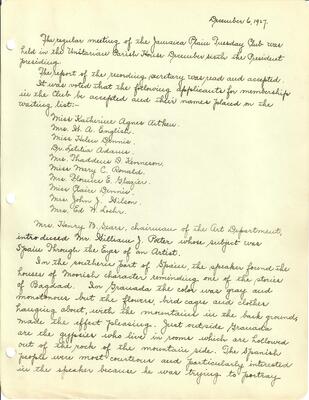 December 6, 1927.
The regular meeting of the Jamaica Plain Tuesday Club was
held in the Unitarian Parish House December sixth the President
presiding.
The report of the recording secretary was read and accepted.
It was voted that the following applicants for membership
in the Club be accepted and their names placed on the
waiting list:-
Miss Katherine Agnes Aitken.
Mrs. H. A. English.
Miss Helen Dennis.
Dr. Letitia Adams.
Mrs. Thaddeus D. Kenneson.
Miss Mary C. Ronald.
Mrs. Florence E. Glazier.
Miss Claire Dennis.
Mrs. John J. Wilson.
Mrs. Ed W. Loehr.
Mrs. Henry M. Sears, chairman of the Art Department,
introduced Mr. William J. Potter whose subject was
Spain Through the Eyes of an Artist.
In the southern part of Spain, the speaker found the
houses of Moorish character reminding one of the stories
of Bagdad. In Granada the color was gray and
monotonous but the flowers, bird cages and clothes
hanging about, with the mountains in the back grounds
made the effect pleasing. Just outside Granada
are the gypsies who live in rooms which are hollowed
out of the rock of the mountain side. The Spanish
people were most courteous and particularly interested
in the speaker because he was trying to portray